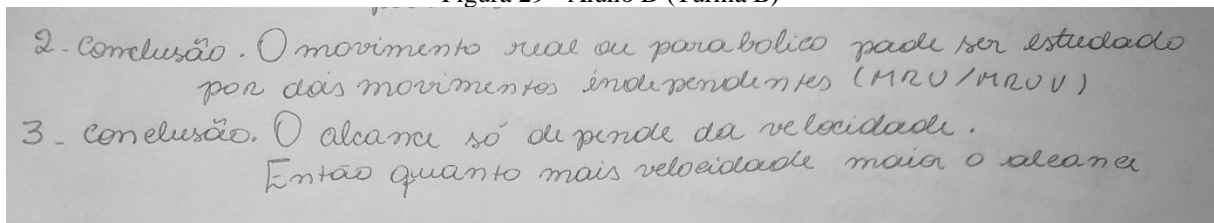 Figura 29 - Aluno D (Turma B)
2- Conclusão. O movimento real ou parabolico pode ser estudado
por dois movimentos independentes (MRU/MRUV)
3- conclusão. O alcance só depende da velocidade.
Então quanto mais velocidade maior o alcance